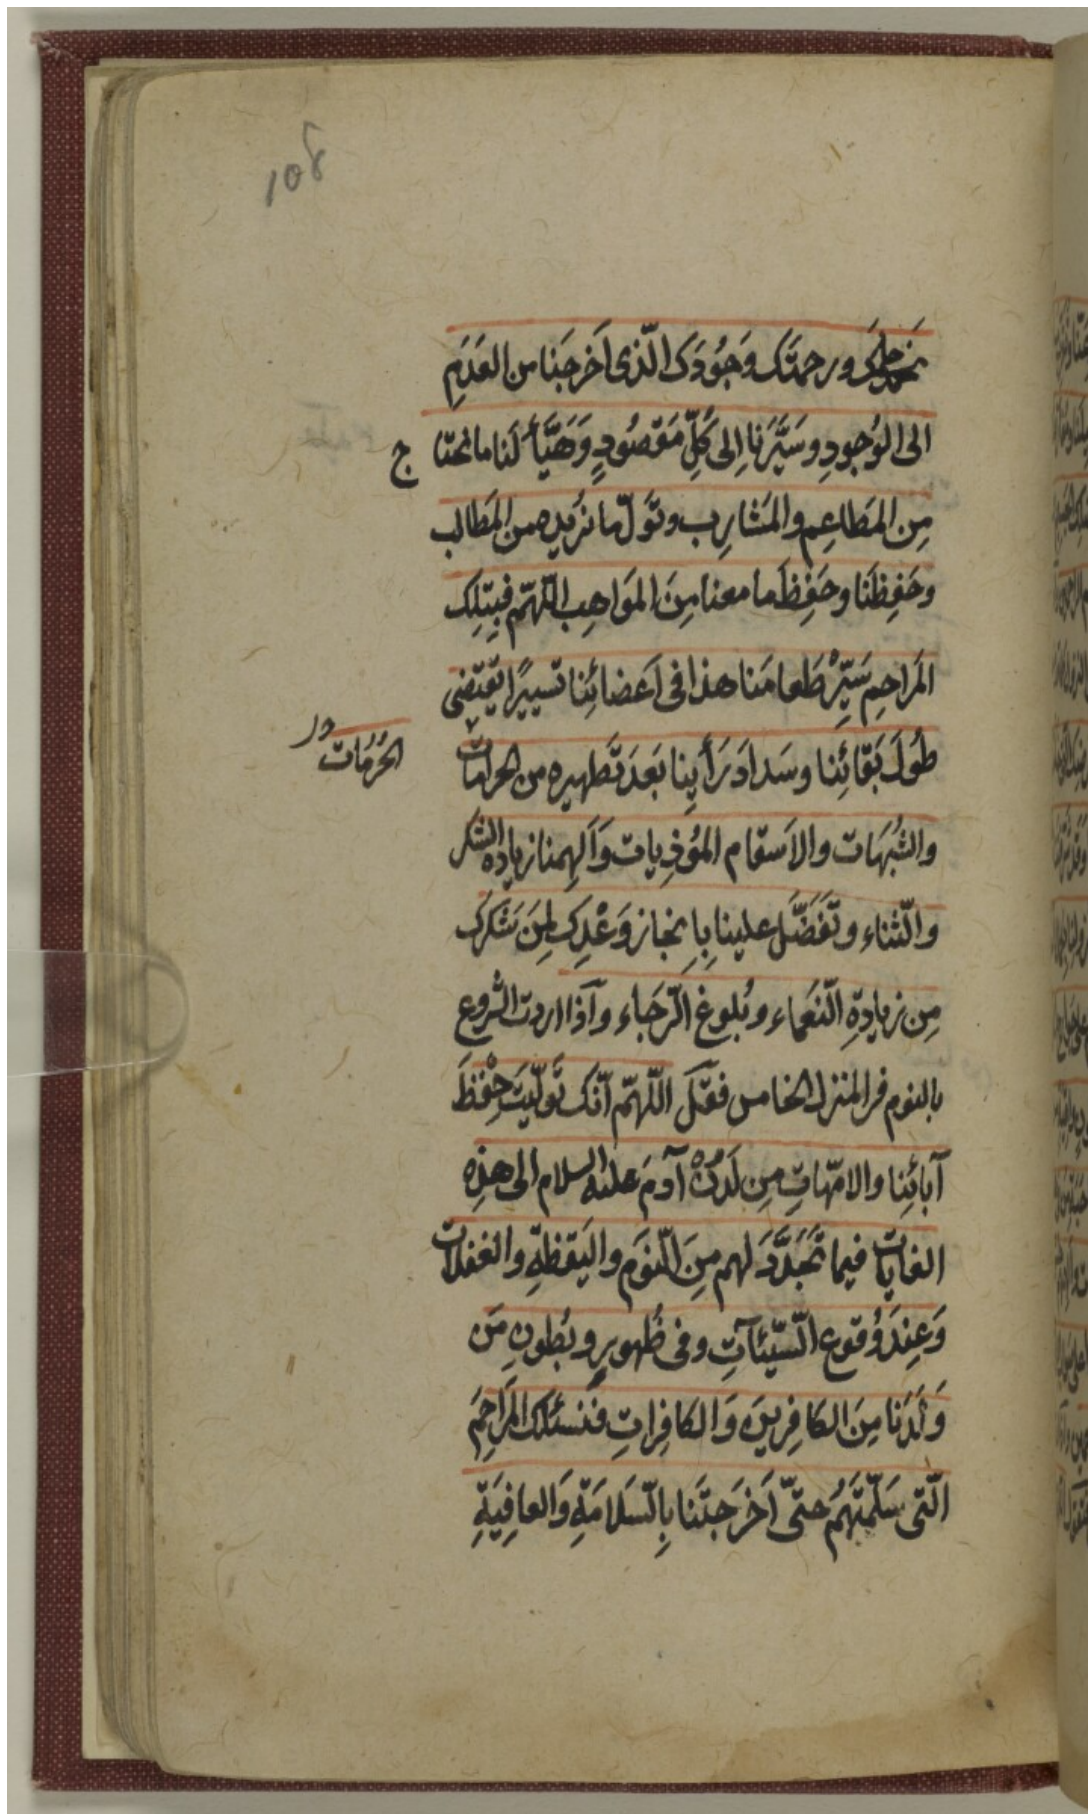 108
حلمك ورحمتك وَجُودك الّذى اَخرجَنا من العَدَمِ
الى الوُجودِ وسَيَّرَنا اِلى كُلِّ مَقصُودٍ وَهَيَّأ لَنا مانحتا ج
مِن المَطاعِم والمَشارِب وتَوَلّ ما نُريده من المَطالب
وحَفِظَنا وحَفِظَ ما معنا مِنَ المَواهِب اللّهمّ فبِتِلك
المَراحِم سَيِّرْ طَعامَنا هذا فى اَعضائِنا تسييرًا يَقتضى
طُولَ بَقائِنا وسَدادَ رَأيِنا بَعدَ تَطهيره من الحرامات
الحُرُمات
والشُبُهَات والاَسقام المُوذِيات وَاَلهِمنا زيادة الشكر
والثّناء وتَفَضَّل علينا بِاِنجاز وَعْدِك لِمَن شَكرَك
مِن زيادةِ النّعَماء وبُلوغ الرّجَاء وآذا اردت الشّروع
بالنوم فى المنزل الخامس فقل اللّهمّ اِنّك تَولّيتَ حِفْظَ
آبائِنا والامّهاتِ مِن لَدُنْ آدمَ عليه السلام الى هذِه
الغايات فيما تَجَدَّدَ لهم مِنَ النّوَم واليَقظةِ والغفلات
وَعِندَ وُقوع السّيّئآتِ وفى ظُهورِ وبُطونِ مَن
وَلَدَنا مِنَ الكافِرينَ وَالكافِراتِ فنَسئلك المَراحِمَ
الّتى سَلّمتَهُم حتّى اَخرَجتَنا بِالسّلامَةِ وَالعافِيَةِ